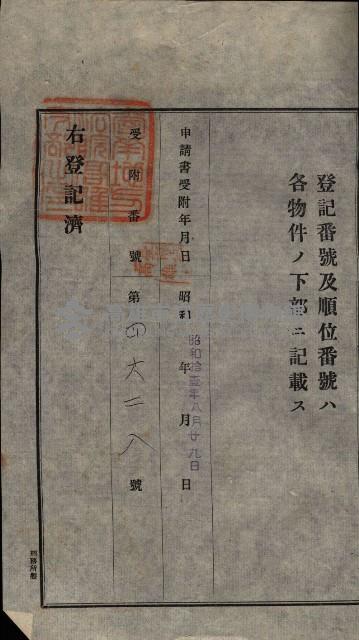 登記番號及順位番號ハ
各物件ノ下部ニ記載ス
申請書受附年月日 昭和 年 月 日
昭和拾壹年八月廿九日
受附番號 第四六二八號
右登記濟